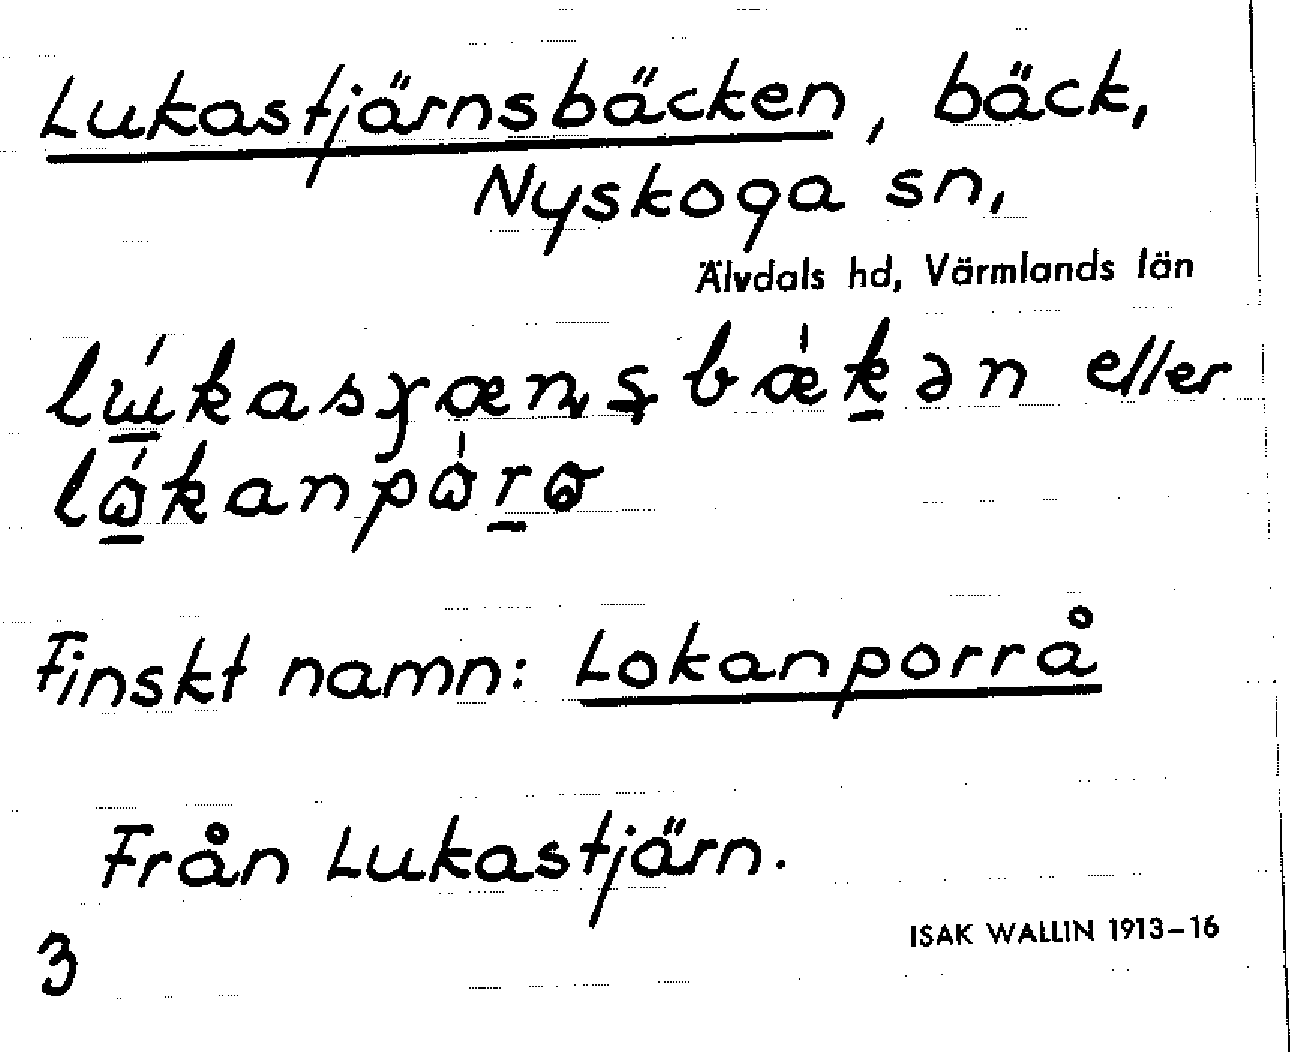 Lukastjärnsbäcken, bäck,
Nyskoga sn,
Älvdals hd, Värmlands län
eller
Finskt namn: Lokanporrå
Från Lukastjärn.
3
ISAK WALLIN 1913–16